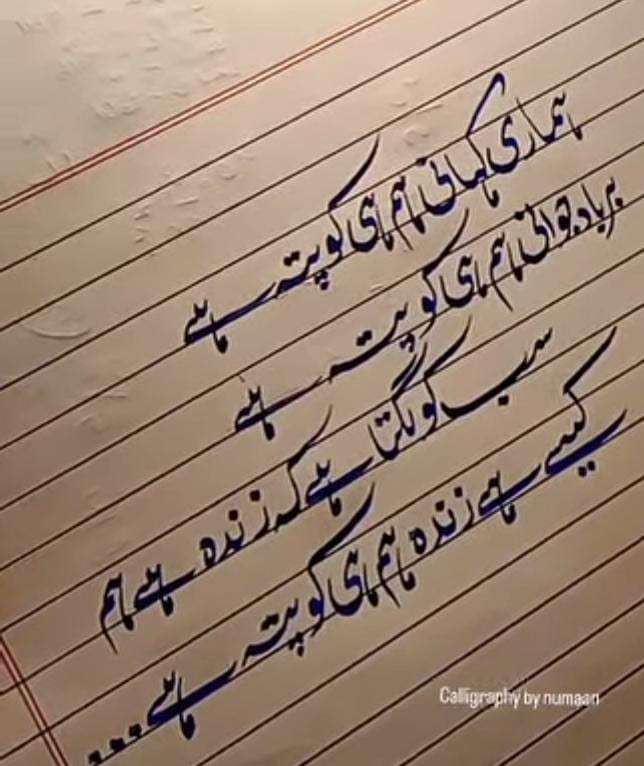 ہماری کہانی ہم ہی کو پتہ ہے
برباد جوانی ہم ہی کو پتہ ہے
سب کو لگتا ہے کہ زندہ ہے ہم
کیسے ہے زندہ ہم ہی کو پتہ ہے...
Calligraphy by numaan